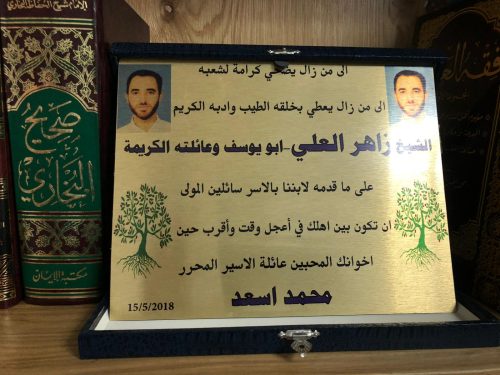 الى من زال يضحي كرامة لشعبه
الى من زال يعطي بخلقه الطيب وادبه الكريم
الشيخ زاهر العلي-ابو يوسف وعائلته الكريمة
على ما قدمه لابننا بالاسر سائلين المولى
ان تكون بين اهلك في أعجل وقت وأقرب حين
اخوانك المحبين عائلة الاسير المحرر
محمد اسعد
15/5/2018
صحيح
البخاري
مكتبة الإيمان
فقه